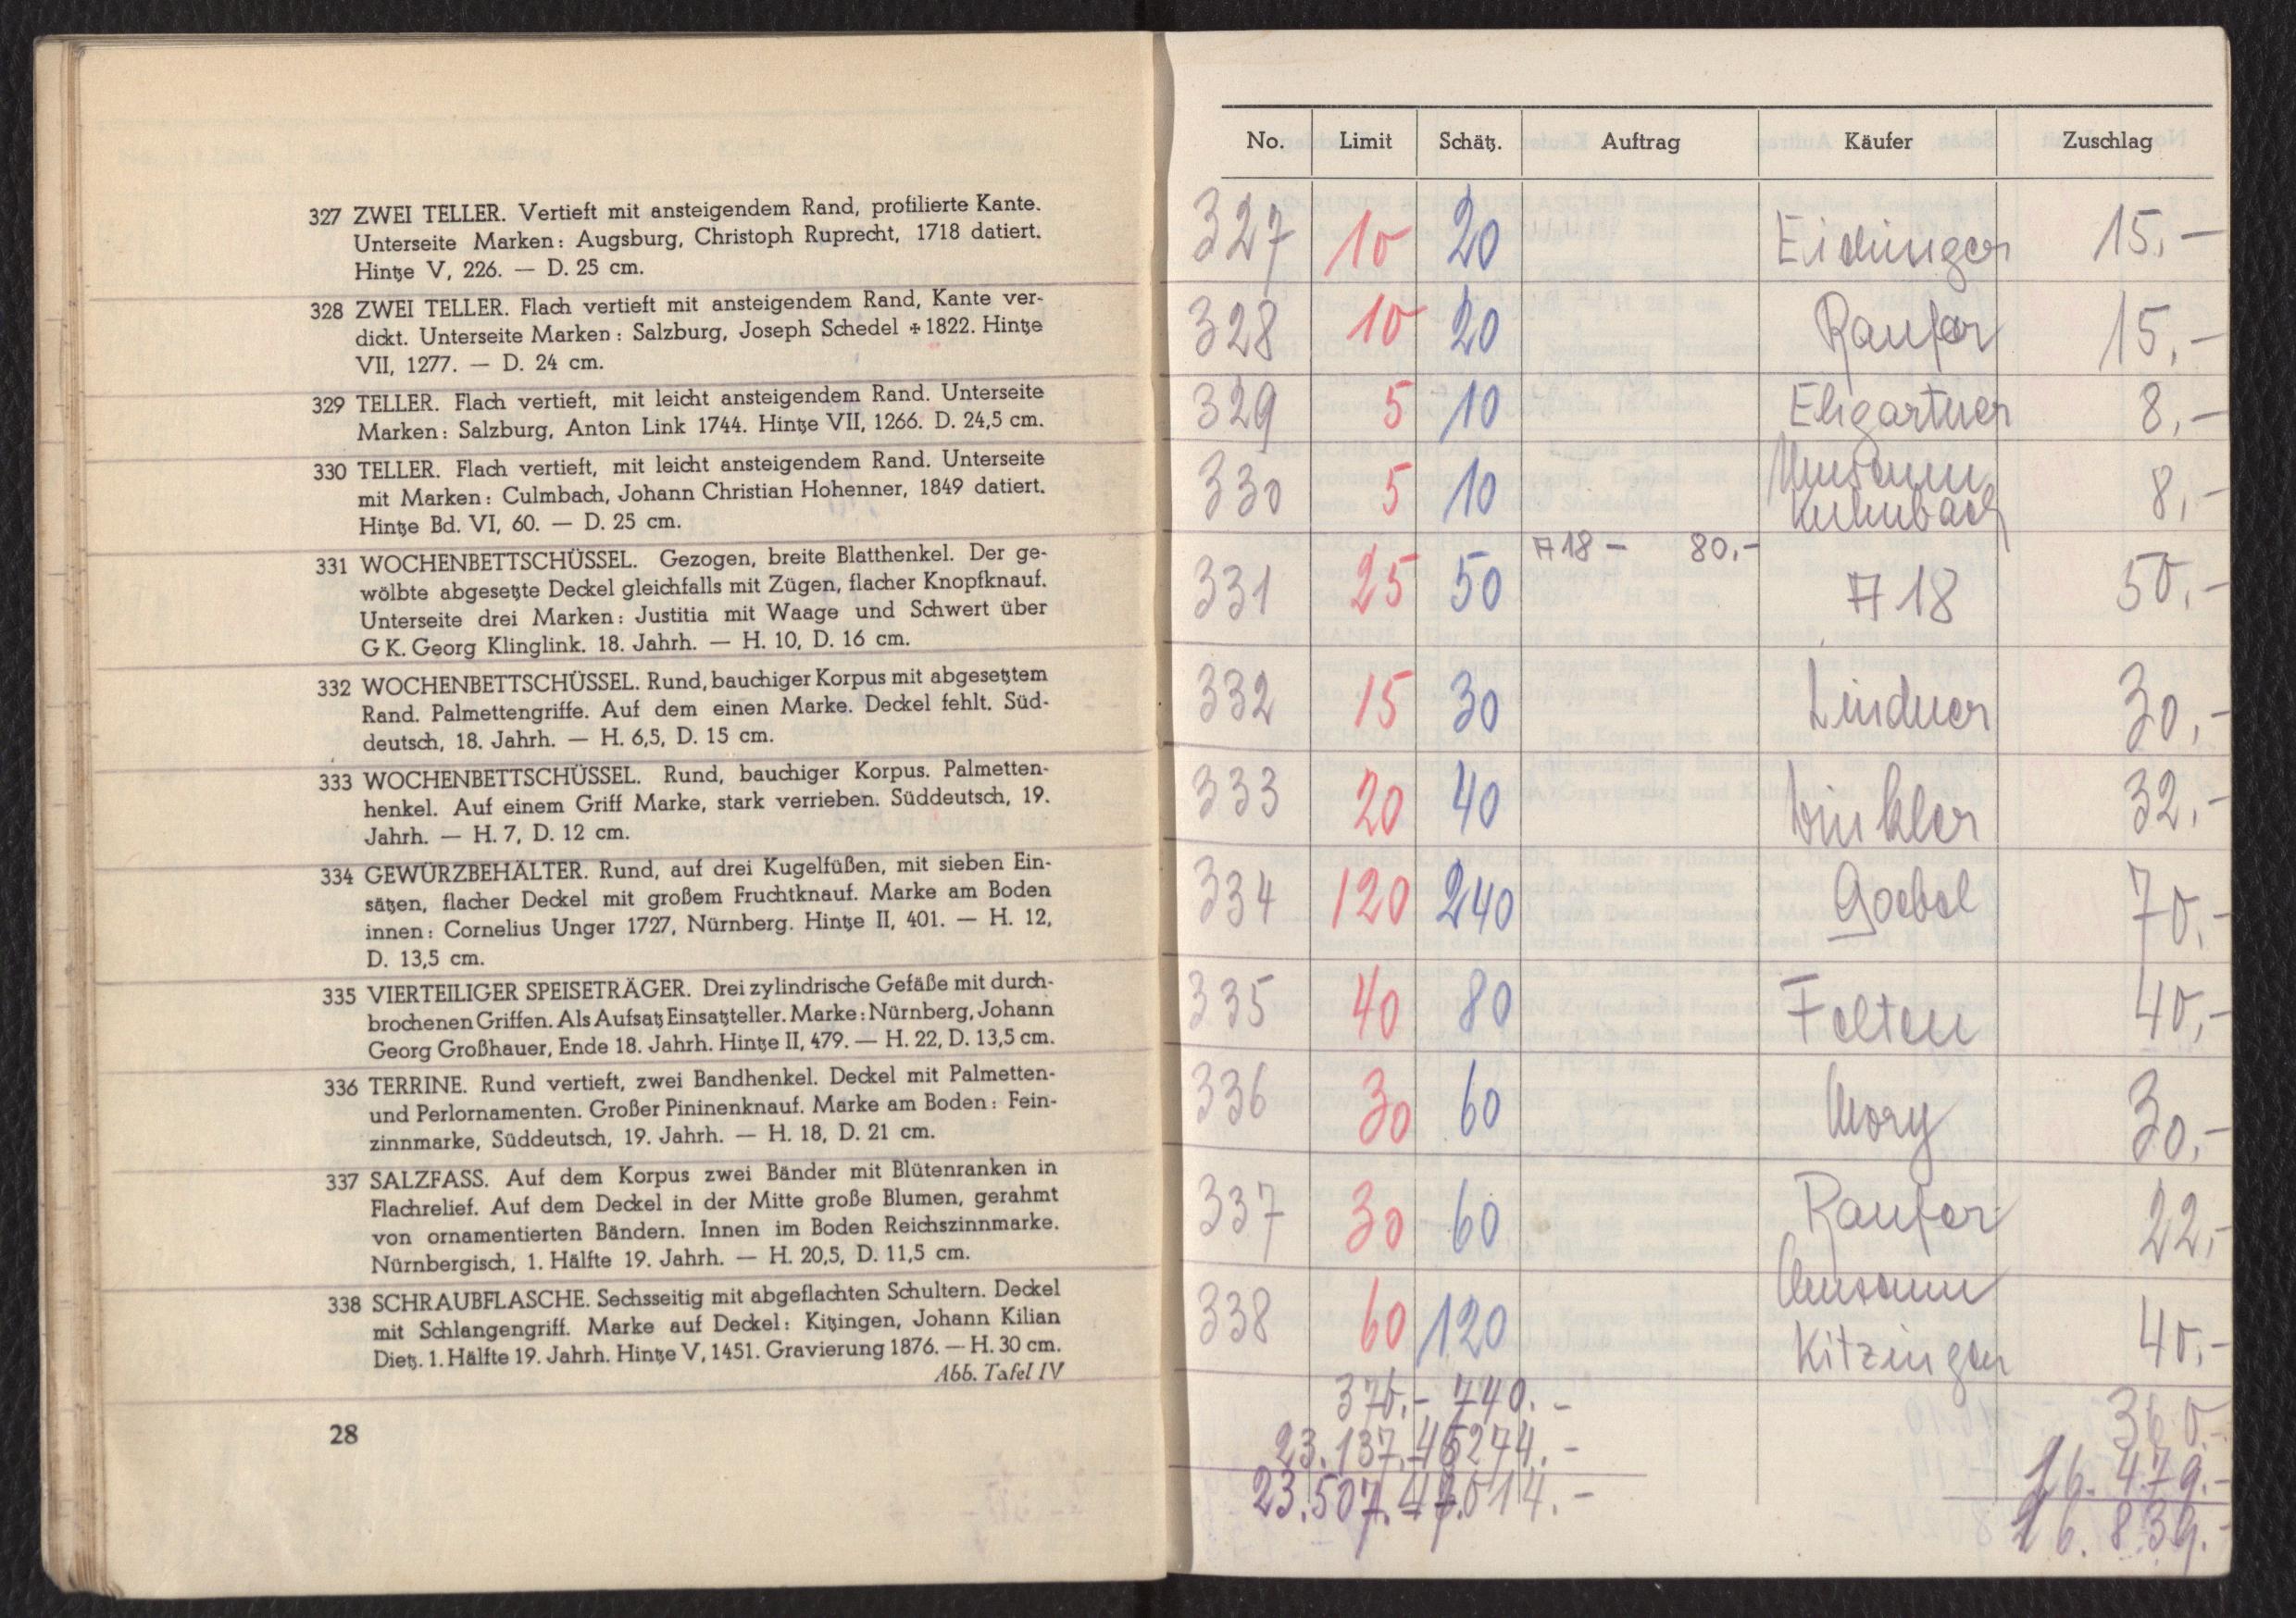 327 ZWEI TELLER. Vertieft mit ansteigendem Rand, profilierte Kante.
Unterseite Marken: Augsburg, Christoph Ruprecht, 1718 datiert.
Hintze V, 226. — D. 25 cm.
328 ZWEI TELLER. Flach vertieft mit ansteigendem Rand, Kante ver-
dickt. Unterseite Marken: Salzburg, Joseph Schedel + 1822. Hintze
VII, 1277. — D. 24 cm.
329 TELLER. Flach vertieft, mit leicht ansteigendem Rand. Unterseite
Marken: Salzburg, Anton Link 1744. Hintze VII, 1266. D. 24,5 cm.
330 TELLER. Flach vertieft, mit leicht ansteigendem Rand. Unterseite
mit Marken: Culmbach, Johann Christian Hohenner, 1849 datiert.
Hintze Bd. VI, 60. — D. 25 cm.
331 WOCHENBETTSCHÜSSEL. Gezogen, breite Blatthenkel. Der ge-
wölbte abgesetzte Deckel gleichfalls mit Zügen, flacher Knopfknauf.
Unterseite drei Marken: Justitia mit Waage und Schwert über
G K. Georg Klinglink. 18. Jahrh. — H. 10, D. 16 cm.
332 WOCHENBETTSCHÜSSEL. Rund, bauchiger Korpus mit abgesetztem
Rand. Palmettengriffe. Auf dem einen Marke. Deckel fehlt. Süd-
deutsch, 18. Jahrh. — H. 6,5, D. 15 cm.
333 WOCHENBETTSCHÜSSEL. Rund, bauchiger Korpus. Palmetten-
henkel. Auf einem Griff Marke, stark verrieben. Süddeutsch, 19.
Jahrh. — H. 7, D. 12 cm.
334 GEWÜRZBEHÄLTER. Rund, auf drei Kugelfüßen, mit sieben Ein-
sätzen, flacher Deckel mit großem Fruchtknauf. Marke am Boden
innen: Cornelius Unger 1727, Nürnberg. Hintze II, 401. — H. 12,
D. 13,5 cm.
335 VIERTEILIGER SPEISETRÄGER. Drei zylindrische Gefäße mit durch-
brochenen Griffen. Als Aufsatz Einsatzteller. Marke: Nürnberg, Johann
Georg Großhauer, Ende 18. Jahrh. Hintze II, 479. — H. 22, D. 13,5 cm.
336 TERRINE. Rund vertieft, zwei Bandhenkel. Deckel mit Palmetten-
und Perlornamenten. Großer Pininenknauf. Marke am Boden: Fein-
zinnmarke, Süddeutsch, 19. Jahrh. — H. 18, D. 21 cm.
337 SALZFASS. Auf dem Korpus zwei Bänder mit Blütenranken in
Flachrelief. Auf dem Deckel in der Mitte große Blumen, gerahmt
von ornamentierten Bändern. Innen im Boden Reichszinnmarke.
Nürnbergisch, 1. Hälfte 19. Jahrh. — H. 20,5, D. 11,5 cm.
338 SCHRAUBFLASCHE. Sechsseitig mit abgeflachten Schultern. Deckel
mit Schlangengriff. Marke auf Deckel: Kitzingen, Johann Kilian
Dietz. 1. Hälfte 19. Jahrh. Hintze V, 1451. Gravierung 1876. — H. 30 cm.
Abb. Tafel IV
28
No. Limit Schätz. Auftrag Käufer Zuschlag
327 10 20 Eidinger 15,-
328 10 20 Raufer 15,-
329 5 10 Ehgartner 8,-
330 5 10 Museum Kulmbach 8,-
A 18 - 80,-
331 25 50 A 18 50,-
332 15 30 Lindner 30,-
333 20 40 Winkler 32,-
334 120 240 Goebel 70,-
335 40 80 Felten 40,-
336 30 60 Mory 30,-
337 30 60 Raufer 22,-
338 60 120 Museum Kitzingen 40,-
370.- 740.- 360.-
23.137.- 46274.- 16.479.-
23.507.- 47.014.- 16.839.-